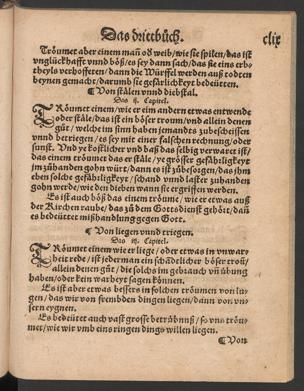 Das dritt bůch. clix
Tröumet aber einem mañ od weib / wie sie spilen / das ist
vnglückhafft vnnd böß / es sey dann sach / das sie ein erb-
theyls verhofften / dann die Würffel werden auß todten
beynen gemacht / darumb sie gefärlichkeyt bedeütten.
¶ Von stälen vnnd diebstal.
Das ij. Capitel.
TRöumet einem / wie er eim andern etwas entwende
oder stäle / das ist ein böser troum / vnd allein denen
gůt / welche im sinn haben jemandts zubescheissen
vnnd betriegen / es sey mit einer falschen rechnung / oder
sunst. Vnd ye kostlicher vnd baß das selbig verwaret ist /
das einem tröumet das er stäle / ye grösser gefärligkeyt
jm zůhanden gohn würt / dann es ist zůbesorgen / das jhm
eben solche gefärligkeyt / schand vnnd laster zůhanden
gohn werde / wie den dieben wann sie ergriffen werden.
Es ist auch böß das einen tröume / wie er etwas auß
der Kirchen raube / das zů dem Gottsdienst gehört / dañ
es bedeüttet mißhandlung gegen Gott.
¶ Von liegen vnnd triegen.
Das iij. Capitel.
TRöumet einem wie er liege / oder etwas in vnwar-
heit rede / ist jederman ein schädelicher böser troũ /
allein denen gůt / die solchs im gebrauch vñ übung
haben / oder kein warheyt sagen können.
Es ist aber etwas bessers in solchen tröumen von lu-
gen / das wir von frembden dingen liegen / dann von vn-
sern eygnen.
Es bedeütet auch vast grosse betrübnuß / so vns tröu-
met / wie wir vmb eins ringen dings willen liegen.
¶ Von